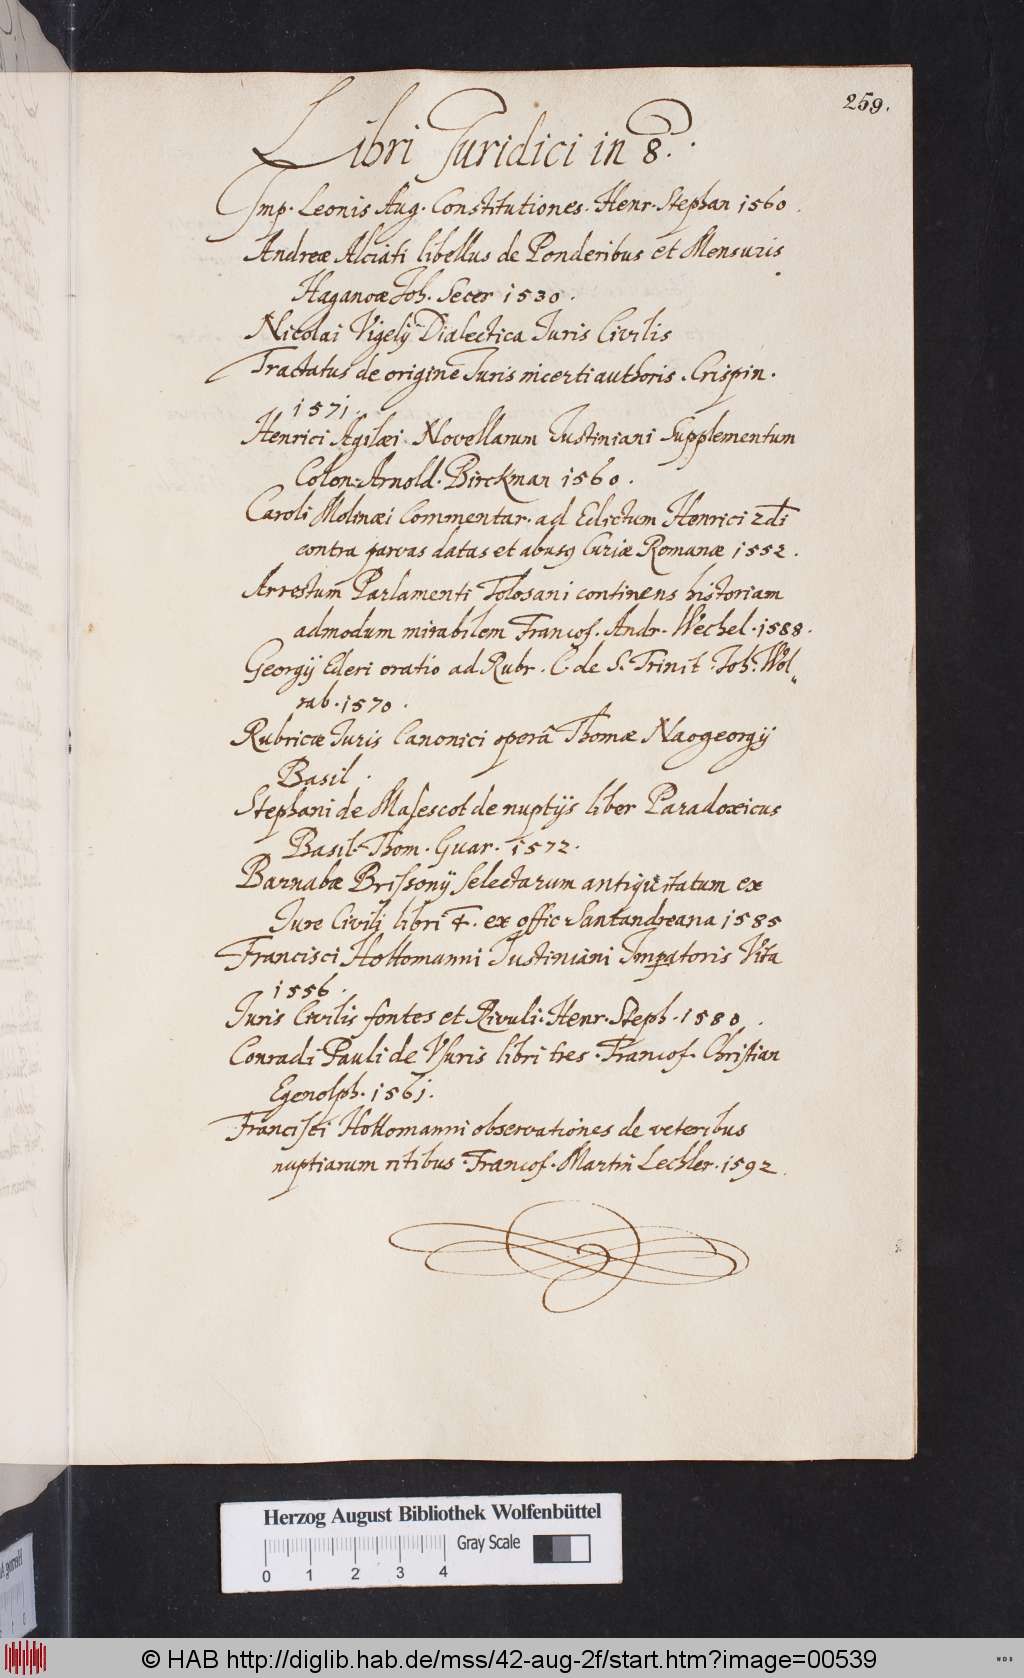 259.
Libri Juridici in 8.
Imp. Leonis Aug. Constitutiones. Henr. Stephan 1560.
Andreæ Alciati libellus de Ponderibus et Mensuris
Haganoæ Joh. Secer 1530.
Nicolai Vigelij Dialectica Juris Civilis
Tractatus de origine Juris incerti authoris. Crispin.
1571.
Henrici Agilæi. Novellarum Justiniani Supplementum
Colon. Arnold. Birckman 1560.
Caroli Molinæi Commentar. ad Edictum Henrici 2di
contra parvas datas et abusꝯ Curiæ Romanæ 1552.
Arrestum Parlamenti Tolosani continens historiam
admodum mirabilem Francof. Andr. Wechel. 1588.
Georgij Ederi oratio ad Rubr. C. de S. Trinit. Joh. Wol„
rab. 1570.
Rubricæ Juris Canonici operâ Thomæ Naogeorgij
Basil.
Stephani de Malescot de nuptijs liber Paradoxicus
Basil. Thom. Guar. 1572.
Barnabæ Brissonij selectarum antiquitatum ex
Jure Civili libri 4. ex offic Santandreana 1585
Francisci Hottomanni Justiniani Impatoris Vita
1556.
Juris Civilis fontes et Rivuli. Henr. Steph. 1580.
Conradi Pauli de Usuris libri tres. Francof. Christian
Egenolph. 1561.
Francisci Hottomanni observationes de veteribus
nuptiarum ritibus. Francof. Martin Lechler. 1592.
Herzog August Bibliothek Wolfenbüttel
Gray Scale
0 1 2 3 4
© HAB http://diglib.hab.de/mss/42-aug-2f/start.htm?image=00539